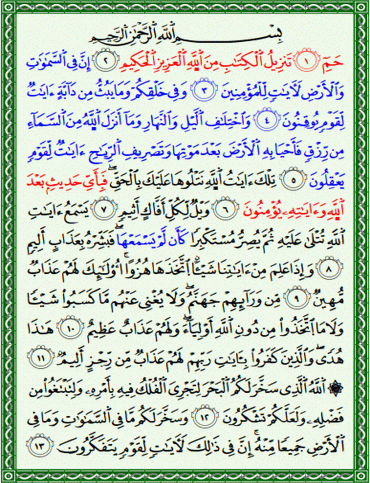 بِسْمِ اللَّهِ الرَّحْمَٰنِ الرَّحِيمِ
حمٓ ١ تَنزِيلُ الْكِتَابِ مِنَ اللَّهِ الْعَزِيزِ الْحَكِيمِ ٢ إِنَّ فِي السَّمَاوَاتِ
وَالْأَرْضِ لَآيَاتٍ لِّلْمُؤْمِنِينَ ٣ وَفِي خَلْقِكُمْ وَمَا يَبُثُّ مِن دَابَّةٍ آيَاتٌ
لِّقَوْمٍ يُوقِنُونَ ٤ وَاخْتِلَافِ اللَّيْلِ وَالنَّهَارِ وَمَا أَنزَلَ اللَّهُ مِنَ السَّمَاءِ
مِن رِّزْقٍ فَأَحْيَا بِهِ الْأَرْضَ بَعْدَ مَوْتِهَا وَتَصْرِيفِ الرِّيَاحِ آيَاتٌ لِّقَوْمٍ
يَعْقِلُونَ ٥ تِلْكَ آيَاتُ اللَّهِ نَتْلُوهَا عَلَيْكَ بِالْحَقِّ ۖ فَبِأَيِّ حَدِيثٍ بَعْدَ
اللَّهِ وَآيَاتِهِ يُؤْمِنُونَ ٦ وَيْلٌ لِّكُلِّ أَفَّاكٍ أَثِيمٍ ٧ يَسْمَعُ آيَاتِ
اللَّهِ تُتْلَىٰ عَلَيْهِ ثُمَّ يُصِرُّ مُسْتَكْبِرًا كَأَن لَّمْ يَسْمَعْهَا ۖ فَبَشِّرْهُ بِعَذَابٍ أَلِيمٍ
٨ وَإِذَا عَلِمَ مِنْ آيَاتِنَا شَيْئًا اتَّخَذَهَا هُزُوًا ۚ أُولَٰئِكَ لَهُمْ عَذَابٌ
مُّهِينٌ ٩ مِّن وَرَائِهِمْ جَهَنَّمُ ۖ وَلَا يُغْنِي عَنْهُم مَّا كَسَبُوا شَيْئًا
وَلَا مَا اتَّخَذُوا مِن دُونِ اللَّهِ أَوْلِيَاءَ ۖ وَلَهُمْ عَذَابٌ عَظِيمٌ ١٠ هَٰذَا
هُدًى ۖ وَالَّذِينَ كَفَرُوا بِآيَاتِ رَبِّهِمْ لَهُمْ عَذَابٌ مِّن رِّجْزٍ أَلِيمٌ ١١
۞ اللَّهُ الَّذِي سَخَّرَ لَكُمُ الْبَحْرَ لِتَجْرِيَ الْفُلْكُ فِيهِ بِأَمْرِهِ وَلِتَبْتَغُوا مِن
فَضْلِهِ وَلَعَلَّكُمْ تَشْكُرُونَ ١٢ وَسَخَّرَ لَكُم مَّا فِي السَّمَاوَاتِ وَمَا فِي
الْأَرْضِ جَمِيعًا مِّنْهُ ۚ إِنَّ فِي ذَٰلِكَ لَآيَاتٍ لِّقَوْمٍ يَتَفَكَّرُونَ ١٣